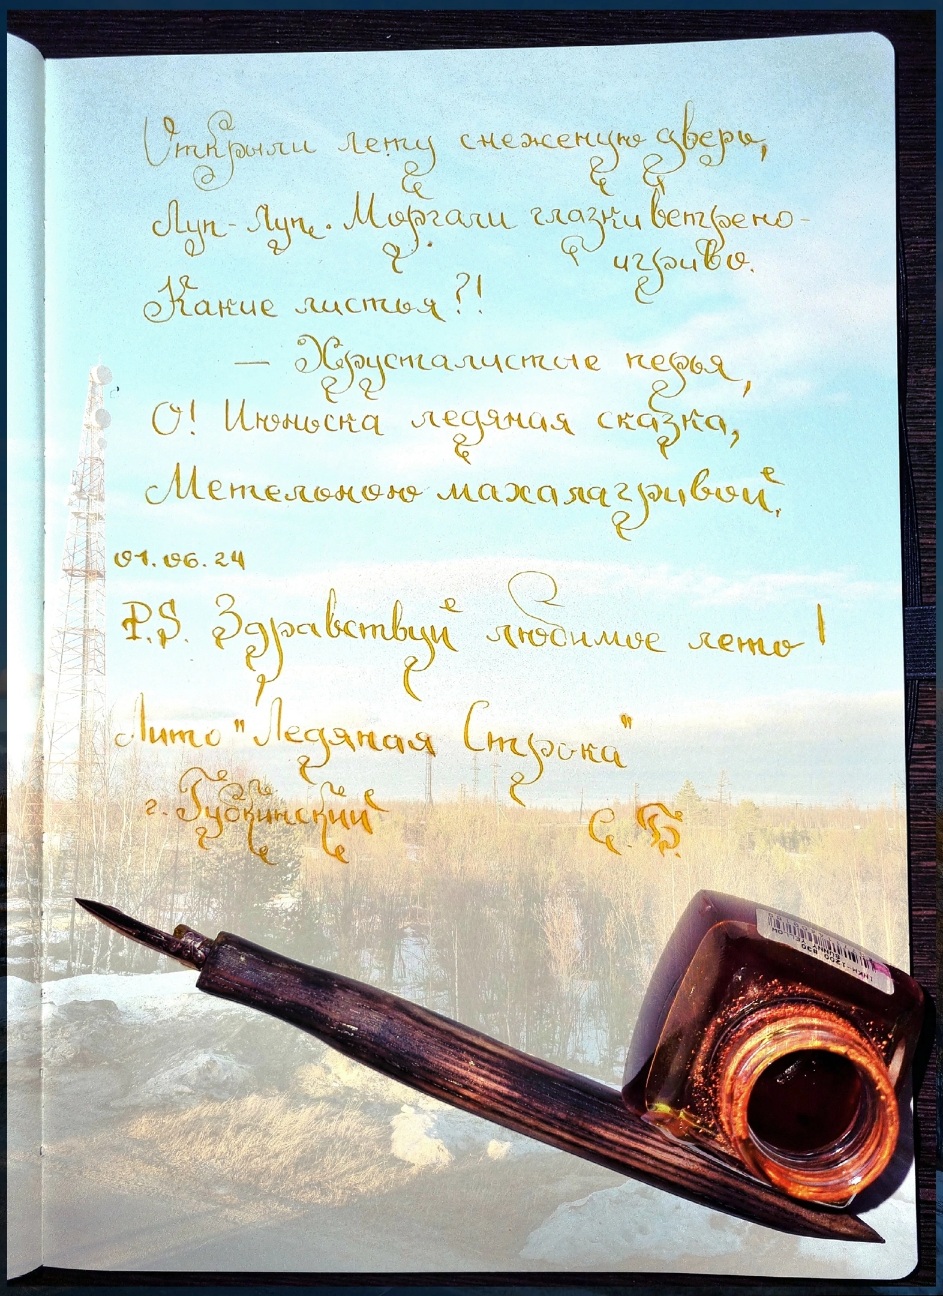 Открыли лету снеженую дверь,
Луп-Луп. Моргали глазки ветрено-
игриво.
Какие листья?!
— Хрусталистые перья,
О! Июньска ледяная сказка,
Метельною махала гривой.
01.06.24
P.S. Здравствуй любимое лето!
Лито "Ледяная Строка"
г. Губкинский С. Б.